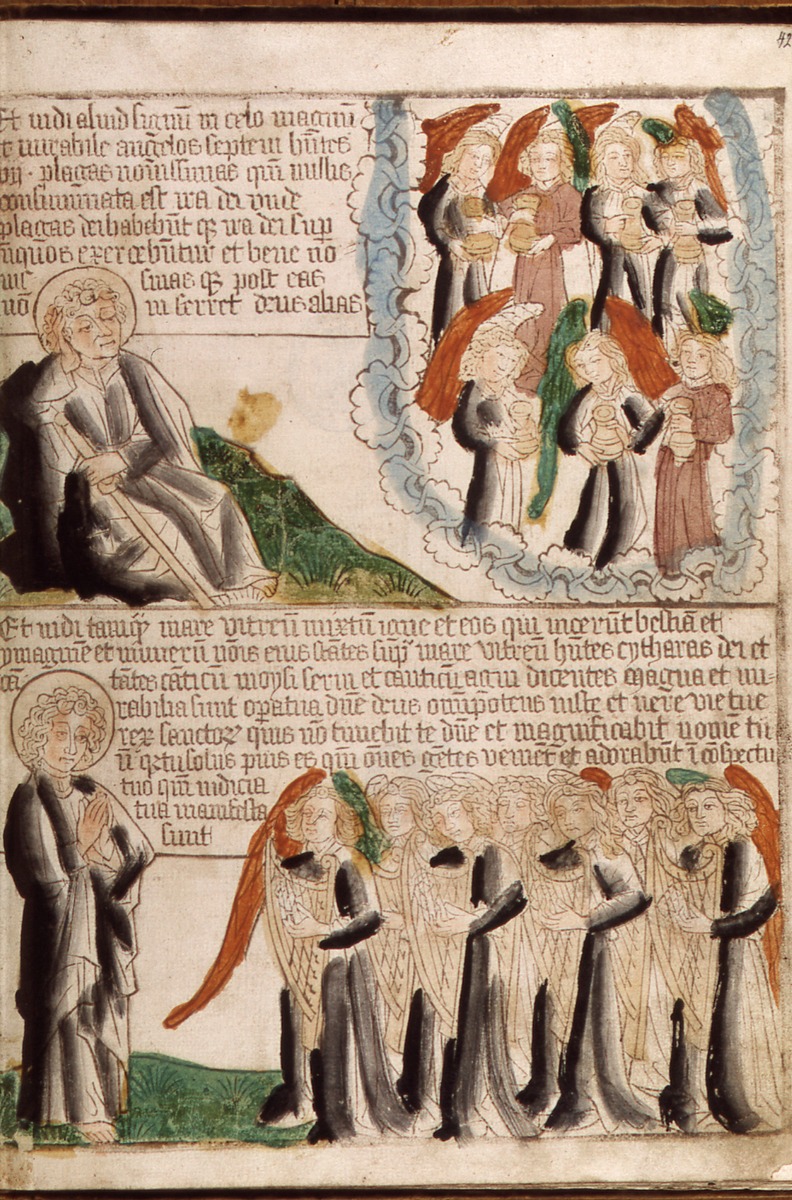 42
Et vidi aliud signū in celo magnū
et mirabile angelos septem hn̄tes
vij · plagas nouissimas qm̄ in illis
consummata est ira dei vnde
plagas dei habebūt qz ira dei sup
iniquos exercebuntur et bene no
uis simas qz post eas
nō in ferret deus alias
Et vidi tamqz mare vitreū mixtū igne et eos qui vicerūt bestiā et
ymaginē et numerū nōis eius stātes sup mare vitreū hn̄tes cytharas dei et
cā tātes cāticū moysi serui et canticū agni dicentes Magna et mi=
rabilia sunt opera tua dn̄e deus omīpotens iuste et vere vie tue
rex sanctorꝝ quis nō timebit te dn̄e et magnificabit nomē tu
ū qr tu solus pius es qm̄ om̄es gētes venient et adorabūt ī cōspectu
tuo qm̄ iudicia
tua manifesta
sunt